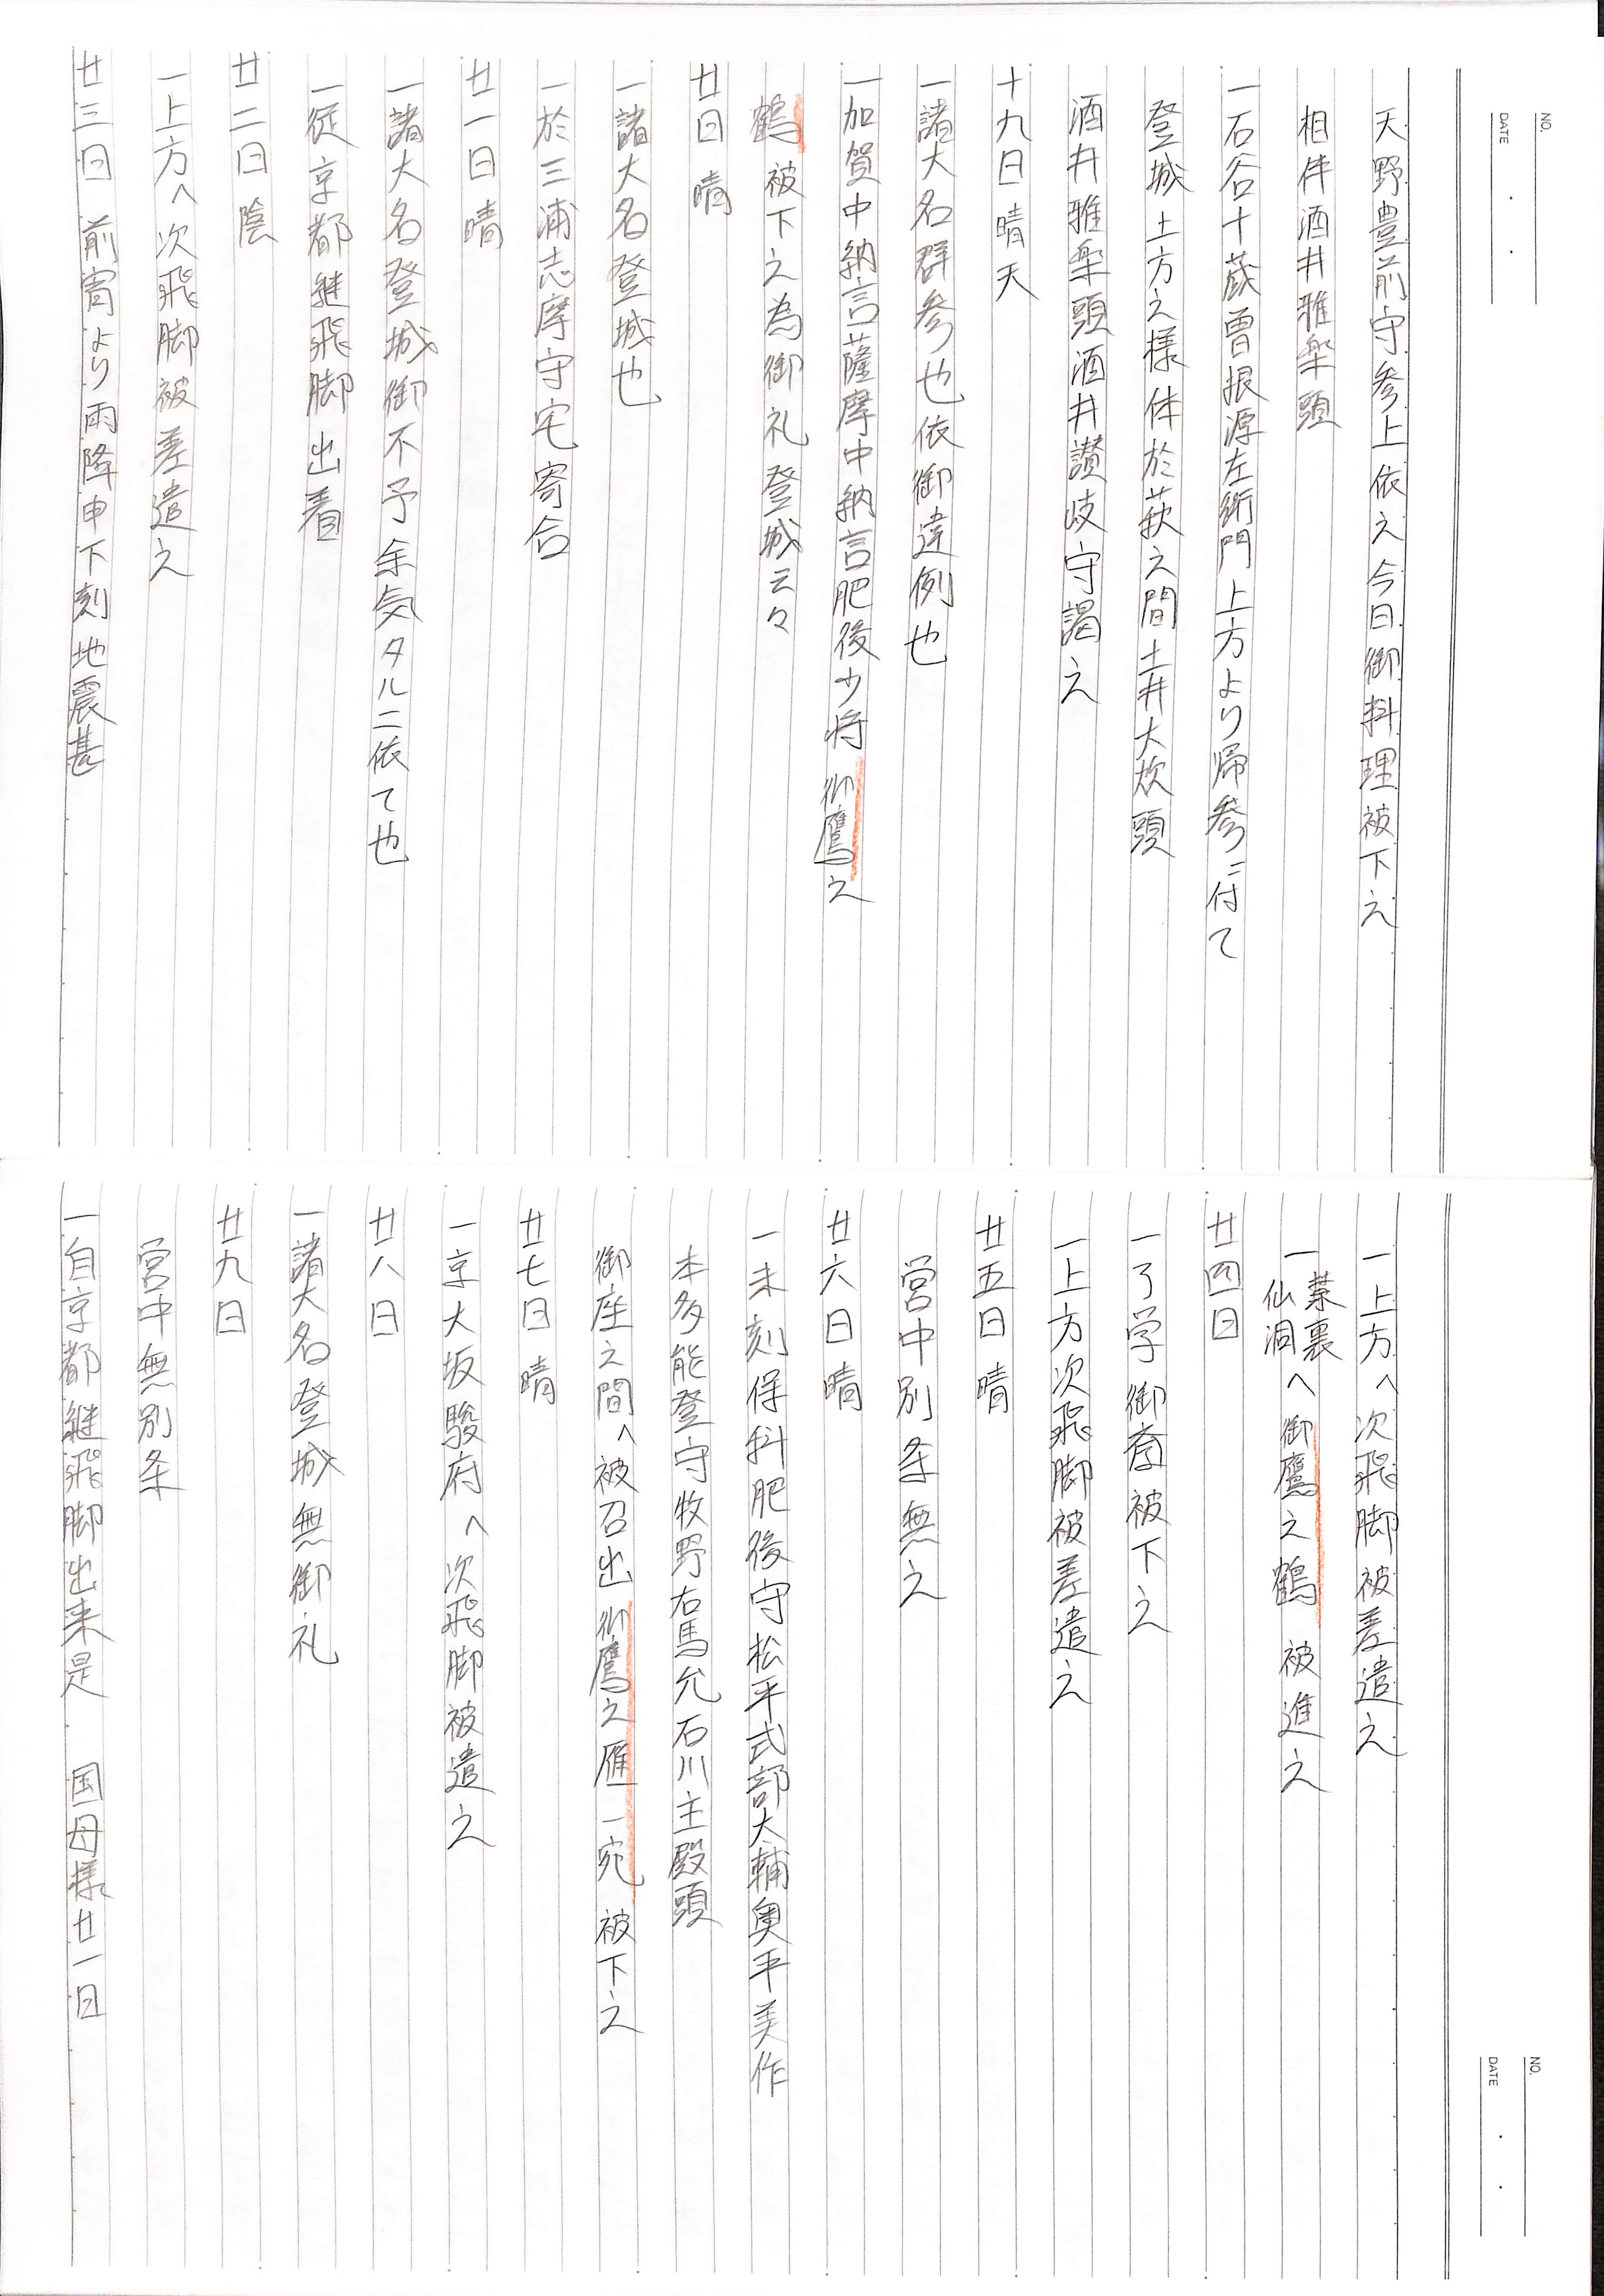 NO.
DATE
天野豊前守参上依之今日御料理被下之
相伴酒井雅楽頭
一石谷十蔵曽根源左衛門上方より帰参ニ付て
登城上方之様体於萩之間土井大炊頭
酒井雅楽頭酒井讃岐守謁之
十九日晴天
一諸大名群参也依御違例也
一加賀中納言薩摩中納言肥後少将御鷹之
鶴被下之為御礼登城云々
廿日 晴
一諸大名登城也
一於三浦志摩守宅寄合
廿一日晴
一諸大名登城御不予余気タルニ依て也
一従京都継飛脚出着
廿二日陰
一上方へ次飛脚被差遣之
廿三日 前宵より雨降申下刻地震甚
NO.
DATE
一上方へ次飛脚被差遣之
一禁裏
仙洞へ御鷹之鶴 被進之
廿四日
一了学御斎被下之
一上方次飛脚被差遣之
廿五日 晴
営中別条無之
廿六日晴
一未刻保科肥後守松平式部大輔奥平美作
本多能登守牧野右馬允石川主殿頭
御座之間へ被召出御鷹之雁一宛 被下之
廿七日晴
一京大坂駿府へ次飛脚被遣之
廿八日
一諸大名登城無御礼
廿九日
営中無別条
一自京都継飛脚出来是 国母様廿一日